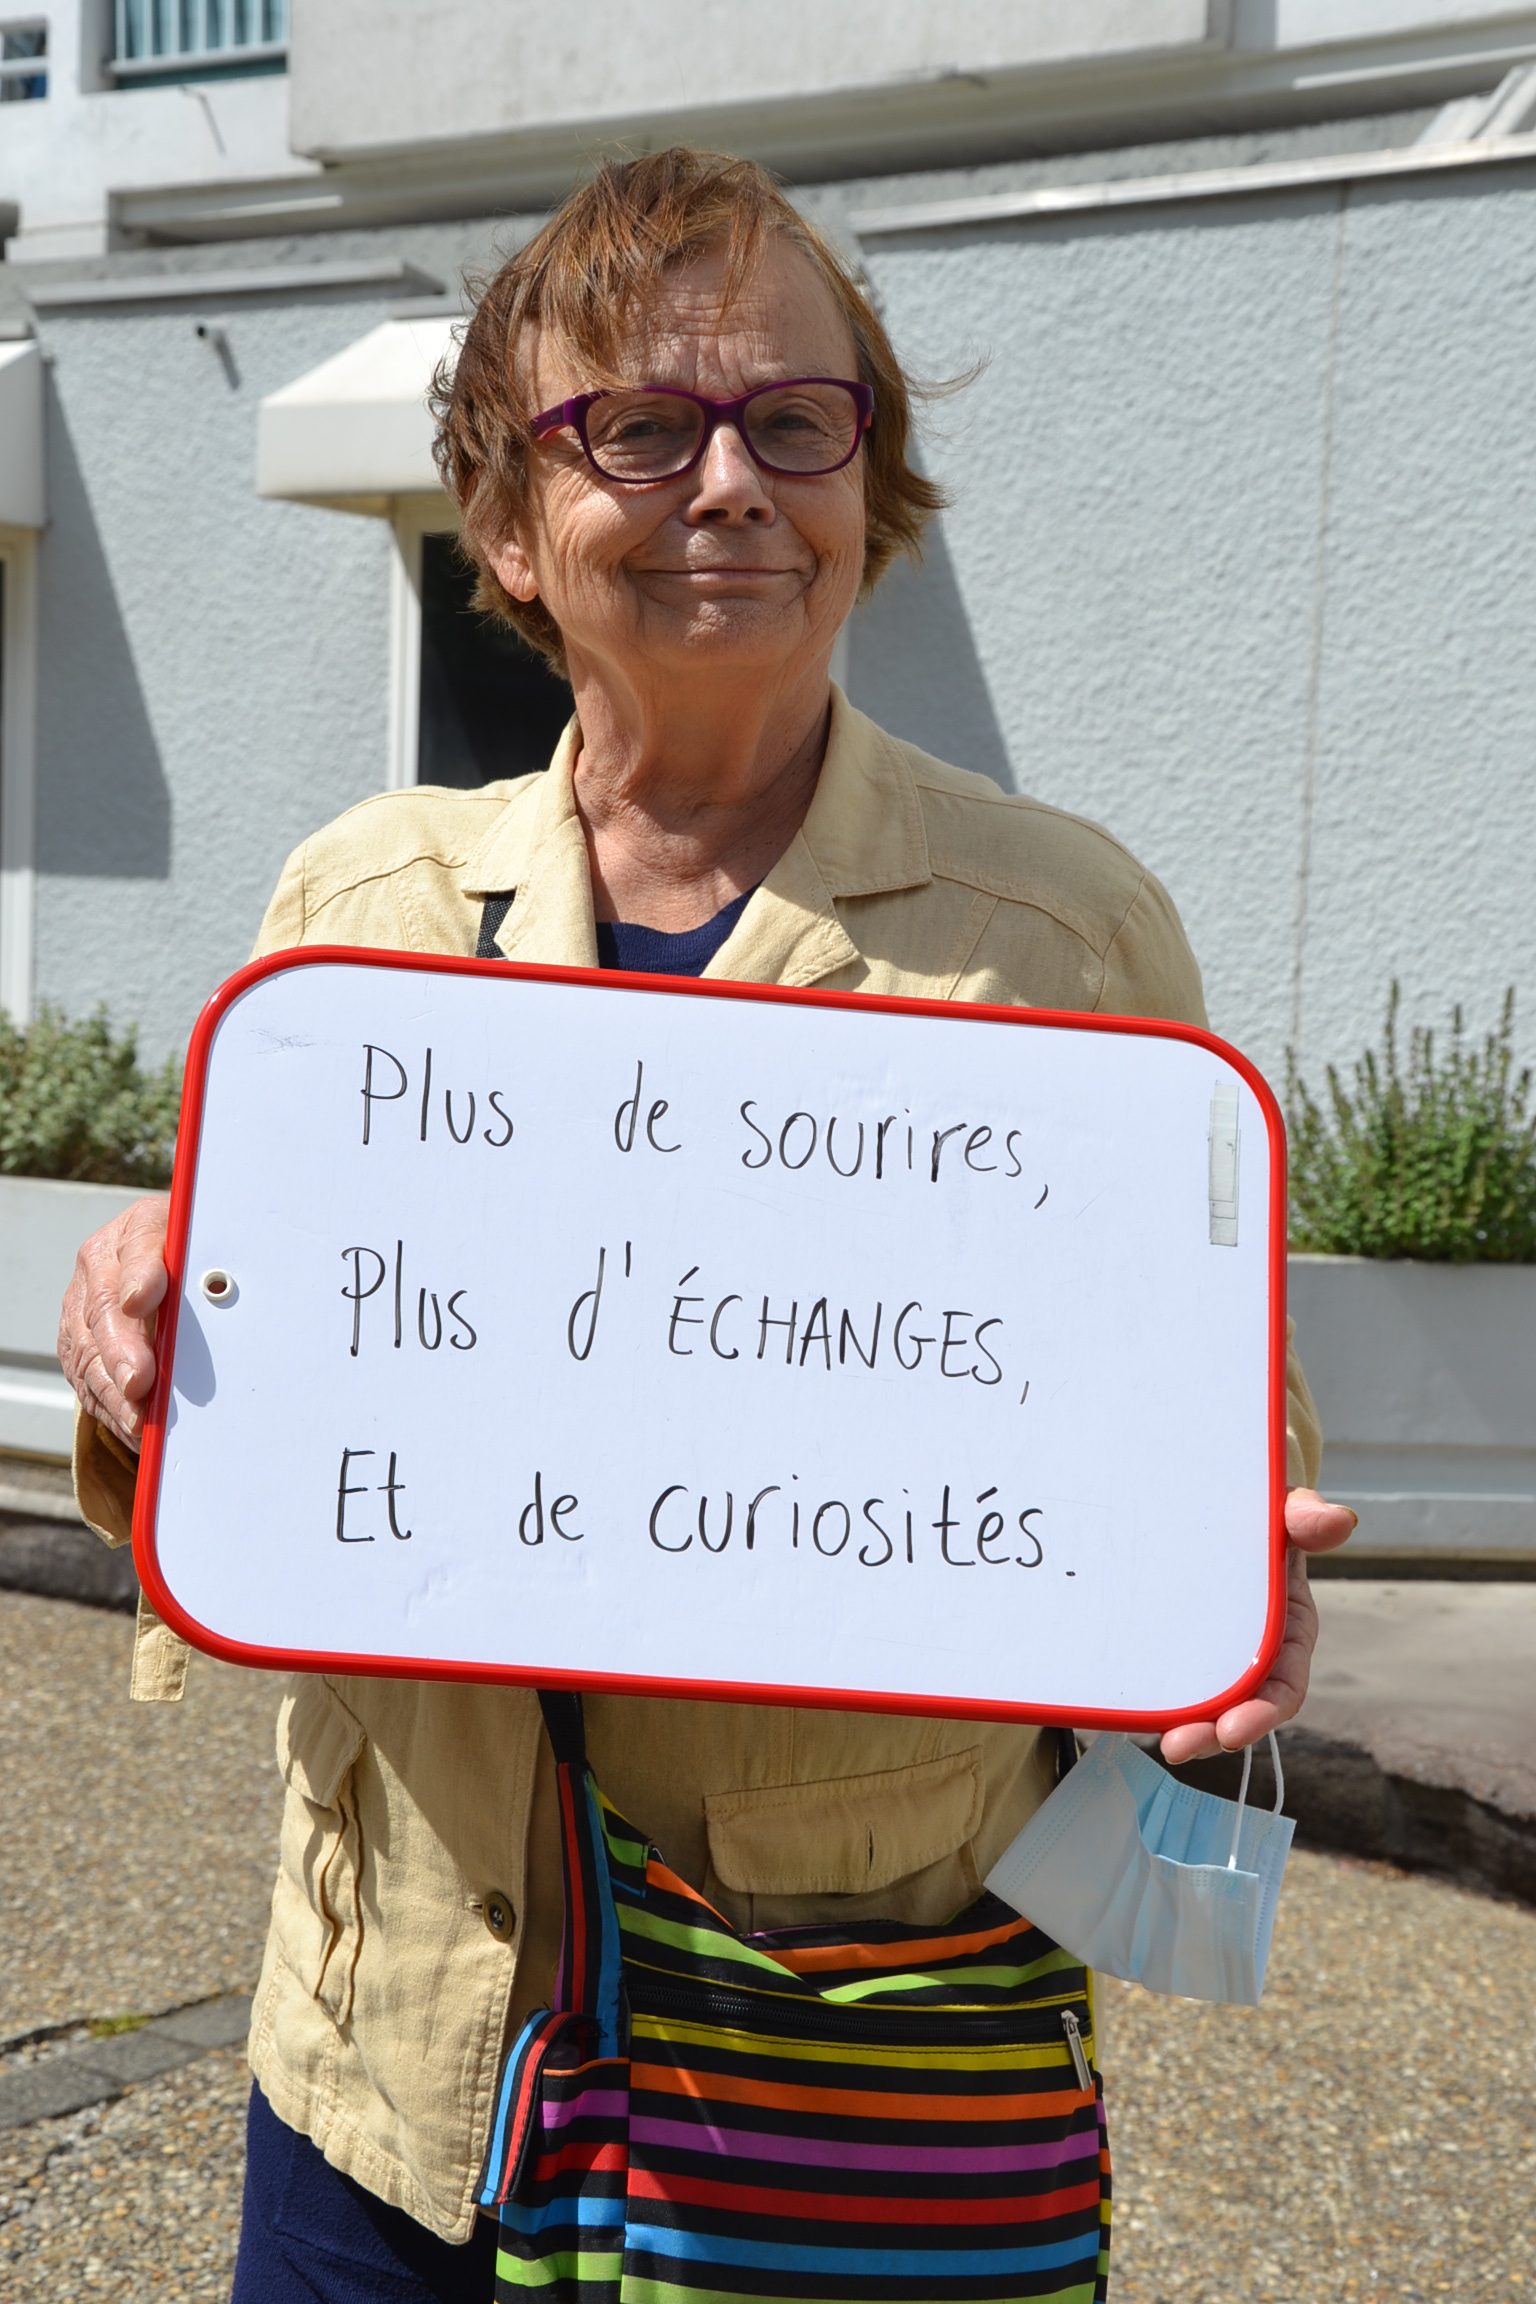 Plus de sourires,
Plus d'ÉCHANGES,
Et de curiosités.